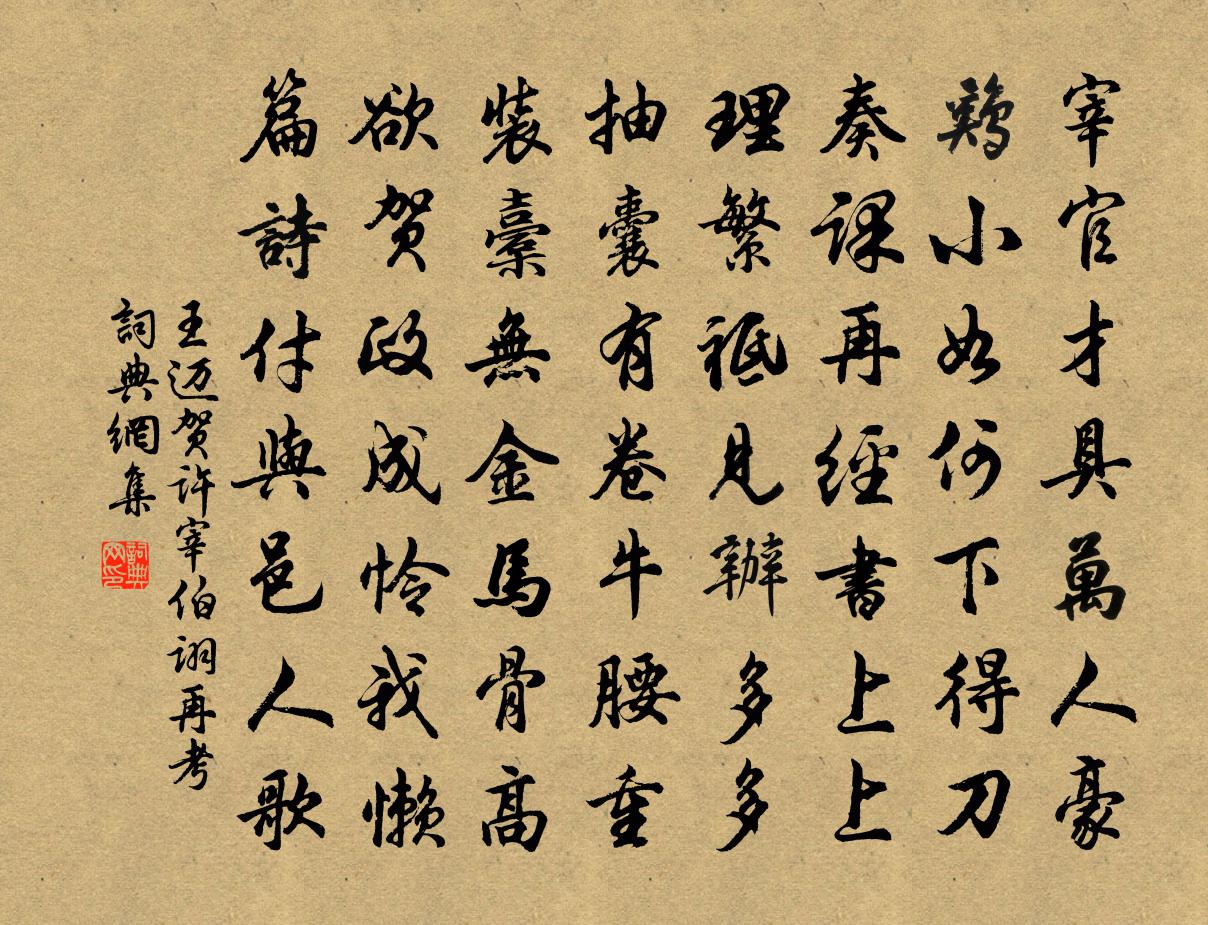 宰官才具萬人豪
鷄小如何下得刀
奏課再經書上上
理繁祗見辦多多
抽囊有卷牛腰重
裝橐無金馬骨高
欲贺政成怜我懒
篇詩付與邑人歌
王迈贺许宰伯詡再考
詞典網集
詞典网印